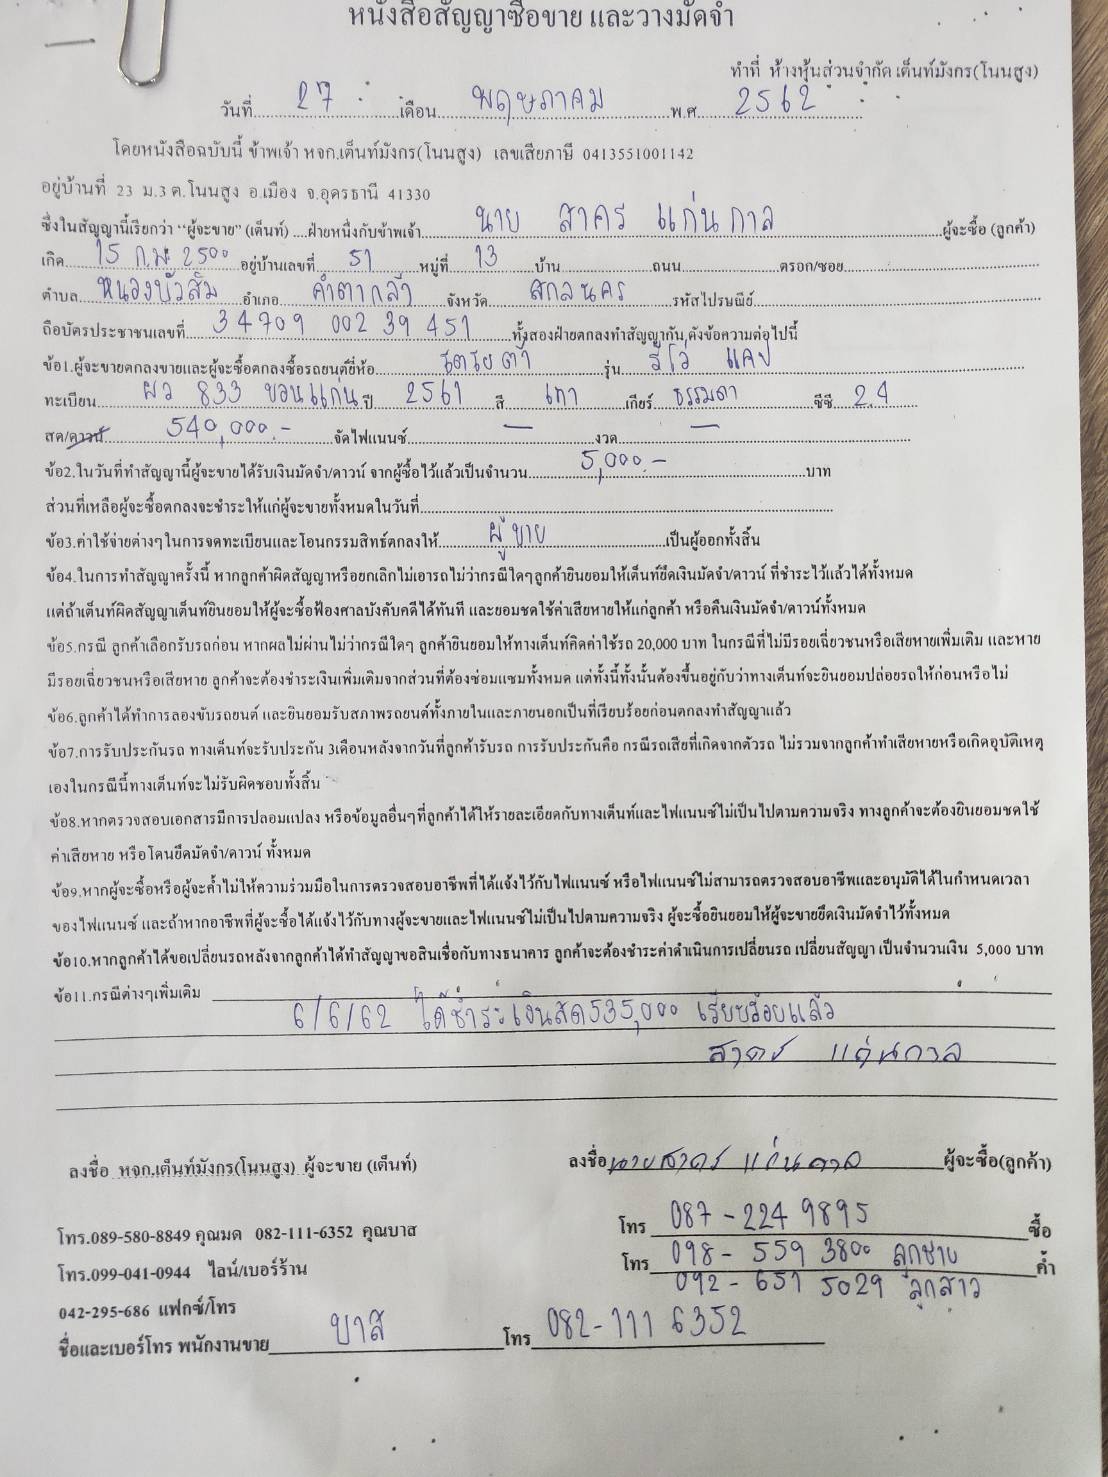 หนังสือสัญญาซื้อขาย และวางมัดจำ
ทำที่ ห้างหุ้นส่วนจำกัด เต็นท์มังกร(โนนสูง)
วันที่ 27 เดือน พฤษภาคม พ.ศ. 2562
โดยหนังสือฉบับนี้ ข้าพเจ้า หจก.เต็นท์มังกร(โนนสูง) เลขเสียภาษี 0413551001142
อยู่บ้านที่ 23 ม.3 ต.โนนสูง อ.เมือง จ.อุดรธานี 41330
ซึ่งในสัญญานี้เรียกว่า "ผู้จะขาย" (เต็นท์) ....ฝ่ายหนึ่งกับข้าพเจ้า นาย สาคร แก่นกาล ผู้จะซื้อ (ลูกค้า)
เกิด 15 ก.พ. 2500 อยู่บ้านเลขที่ 51 หมู่ที่ 13 บ้าน ถนน ตรอก/ซอย
ตำบล หนองบัวสิม อำเภอ คำตากล้า จังหวัด สกลนคร รหัสไปรษณีย์
ถือบัตรประชาชนเลขที่ 34709 002 39 451 ทั้งสองฝ่ายตกลงทำสัญญากัน ดังข้อความต่อไปนี้
ข้อ1.ผู้จะขายตกลงขายและผู้จะซื้อตกลงซื้อรถยนต์ยี่ห้อ โตโยต้า รุ่น รีโว่ แคป
ทะเบียน ผว 833 ขอนแก่น ปี 2561 สี เทา เกียร์ ธรรมดา ซีซี 2.4
สด/ดาวน์ 540,000.- จัดไฟแนนซ์ — งวด —
ข้อ2.ในวันที่ทำสัญญานี้ผู้จะขายได้รับเงินมัดจำ/ดาวน์ จากผู้ซื้อไว้แล้วเป็นจำนวน 5,000.- บาท
ส่วนที่เหลือผู้จะซื้อตกลงจะชำระให้แก่ผู้จะขายทั้งหมดในวันที่
ข้อ3.ค่าใช้จ่ายต่างๆในการจดทะเบียนและโอนกรรมสิทธิ์ตกลงให้ ผู้ขาย เป็นผู้ออกทั้งสิ้น
ข้อ4.ในการทำสัญญาครั้งนี้ หากลูกค้าผิดสัญญาหรือยกเลิกไม่เอารถไม่ว่ากรณีใดๆลูกค้ายินยอมให้เต็นท์ยึดเงินมัดจำ/ดาวน์ ที่ชำระไว้แล้วได้ทั้งหมด
แต่ถ้าเต็นท์ผิดสัญญาเต็นท์ยินยอมให้ผู้จะซื้อฟ้องศาลบังคับคดีได้ทันที และยอมชดใช้ค่าเสียหายให้แก่ลูกค้า หรือคืนเงินมัดจำ/ดาวน์ทั้งหมด
ข้อ5.กรณี ลูกค้าเลือกรับรถก่อน หากผลไม่ผ่านไม่ว่ากรณีใดๆ ลูกค้ายินยอมให้ทางเต็นท์คิดค่าใช้รถ 20,000 บาท ในกรณีที่ไม่มีรอยเฉี่ยวชนหรือเสียหายเพิ่มเติม และหาย
มีรอยเฉี่ยวชนหรือเสียหาย ลูกค้าจะต้องชำระเงินเพิ่มเติมจากส่วนที่ต้องซ่อมแซมทั้งหมด แต่ทั้งนี้ทั้งนั้นต้องขึ้นอยู่กับว่าทางเต็นท์จะยินยอมปล่อยรถให้ก่อนหรือไม่
ข้อ6.ลูกค้าได้ทำการลองขับรถยนต์ และยินยอมรับสภาพรถยนต์ทั้งภายในและภายนอกเป็นที่เรียบร้อยก่อนตกลงทำสัญญาแล้ว
ข้อ7.การรับประกันรถ ทางเต็นท์จะรับประกัน 3เดือนหลังจากวันที่ลูกค้ารับรถ การรับประกันคือ กรณีรถเสียที่เกิดจากตัวรถ ไม่รวมจากลูกค้าทำเสียหายหรือเกิดอุบัติเหตุ
เองในกรณีนี้ทางเต็นท์จะไม่รับผิดชอบทั้งสิ้น
ข้อ8.หากตรวจสอบเอกสารมีการปลอมแปลง หรือข้อมูลอื่นๆที่ลูกค้าได้ให้รายละเอียดกับทางเต็นท์และไฟแนนซ์ไม่เป็นไปตามความจริง ทางลูกค้าจะต้องยินยอมชดใช้
ค่าเสียหาย หรือโดนยึดมัดจำ/ดาวน์ ทั้งหมด
ข้อ9.หากผู้จะซื้อหรือผู้จะค้ำไม่ให้ความร่วมมือในการตรวจสอบอาชีพที่ได้แจ้งไว้กับไฟแนนซ์ หรือไฟแนนซ์ไม่สามารถตรวจสอบอาชีพและอนุมัติได้ในกำหนดเวลา
ของไฟแนนซ์ และถ้าหากอาชีพที่ผู้จะซื้อได้แจ้งไว้กับทางผู้จะขายและไฟแนนซ์ไม่เป็นไปตามความจริง ผู้จะซื้อยินยอมให้ผู้จะขายยึดเงินมัดจำไว้ทั้งหมด
ข้อ10.หากลูกค้าได้ขอเปลี่ยนรถหลังจากลูกค้าได้ทำสัญญาขอสินเชื่อกับทางธนาคาร ลูกค้าจะต้องชำระค่าดำเนินการเปลี่ยนรถ เปลี่ยนสัญญา เป็นจำนวนเงิน 5,000 บาท
ข้อ11.กรณีต่างๆเพิ่มเติม
6/6/62 ได้ชำระเงินสด535,000 เรียบร้อยแล้ว
สาคร แก่นกาล
ลงชื่อ หจก.เต็นท์มังกร(โนนสูง) ผู้จะขาย (เต็นท์) ลงชื่อ นายสาคร แก่นกาล ผู้จะซื้อ(ลูกค้า)
โทร.089-580-8849 คุณมด 082-111-6352 คุณบาส โทร 087-224 9895 ซื้อ
โทร.099-041-0944 ไลน์/เบอร์ร้าน โทร 098-559 3800 ลูกชาย ค้ำ
092-651 5029 ลูกสาว
042-295-686 แฟกซ์/โทร
ชื่อและเบอร์โทร พนักงานขาย บาส โทร 082-111 6352